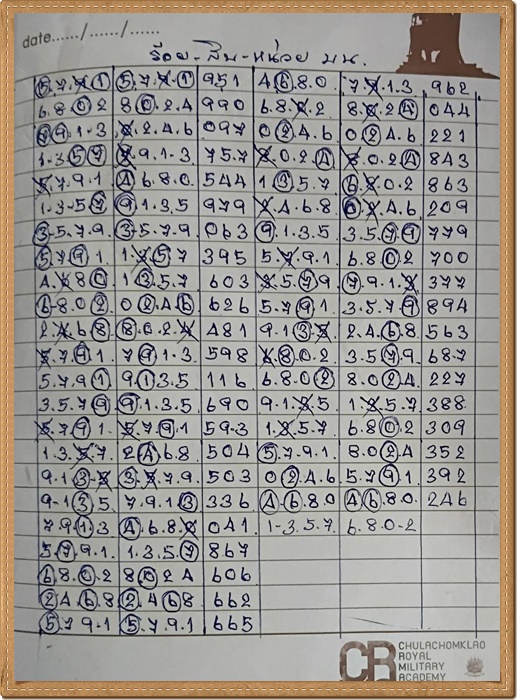 date....../....../......
ร้อย-สิบ-หน่วย บน.
5.7.9.1 5.7.9.1 951 4.6.8.0 7.9.1.3 962
6.8.0.2 8.0.2.4 990 6.8.0.2 8.0.2.4 044
7.9.1-3 0.2.4.6 097 0.2.4.6 0.2.4.6 221
1-3.5.7 7.9.1-3. 75.7 8.0.2.4 8.0.2.4 843
5.7.9.1 4.6.8.0. 544 1.3.5.7 6.8.0.2 863
1-3-5.7 9.1.3.5 979 2.4.6.8. 0.2.4.6. 209
3.5.7.9 3-5.7.9 063 9.1.3.5 3.5.7.9 779
5.7.9.1 1.3.5.7 395 5.7.9.1 6.8.0.2 700
4.6.8.0 1.3.5.7 603 3.5.7.9 7.9.1.3 377
6.8.0.2 0.2.4.6 626 5.7.9.1 3.5.7.9 894
2.4.6.8 8.0.2.4 481 9.1.3.5 2.4.6.8 563
5.7.9.1. 7.9.1-3 598 6.8.0.2 3.5.7.9 687
5.7.9.1 9.1.3.5 116 6.8.0.2 8.0.2.4 227
3.5.7.9 9.1.3.5 690 9-1.3.5 1.3.5.7 388
5.7.9.1- 5.7.9.1 593 1.3.5.7 6.8.0.2 309
1-3.5.7 2.4.6.8 504 5.7.9.1. 8.0.2.4 352
9.1.3-5 3.5.7.9 503 0.2.4.6 5.7.9.1 392
9-1.3.5 7.9.1.3 336 4.6.8.0 4.6.8.0. 246
7.9.1.3 4.6.8.0 041 1-3.5.7. 6.8.0-2
5.7.9.1. 1.3.5.7 867
6.8.0.2 8.0.2.4 606
2.4.6.8 2.4.6.8 662
5.7.9-1 5.7.9.1 665
CR CHULACHOMKLAO
ROYAL
MILITARY
ACADEMY